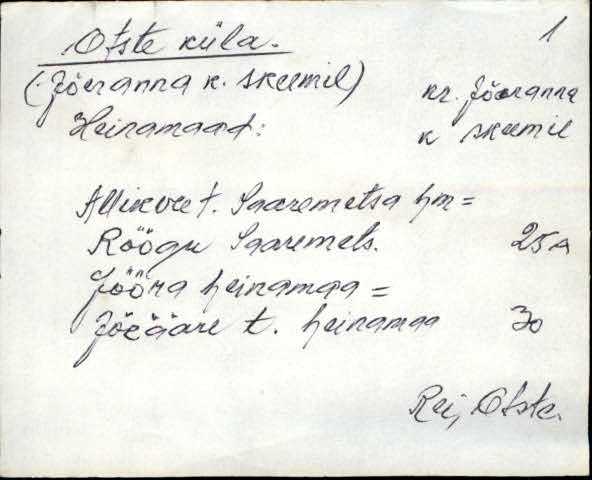 Otste küla. 1
(Jõeranna k. skeemil)
nr. Jõeranna
Heinamaad:
k skeemil
Allikvee t. Saaremetsa hm =
Röögu Saaremets. 25A
Jööra heinamaa =
Jõeääre t. heinamaa 30
Rei, Otste.